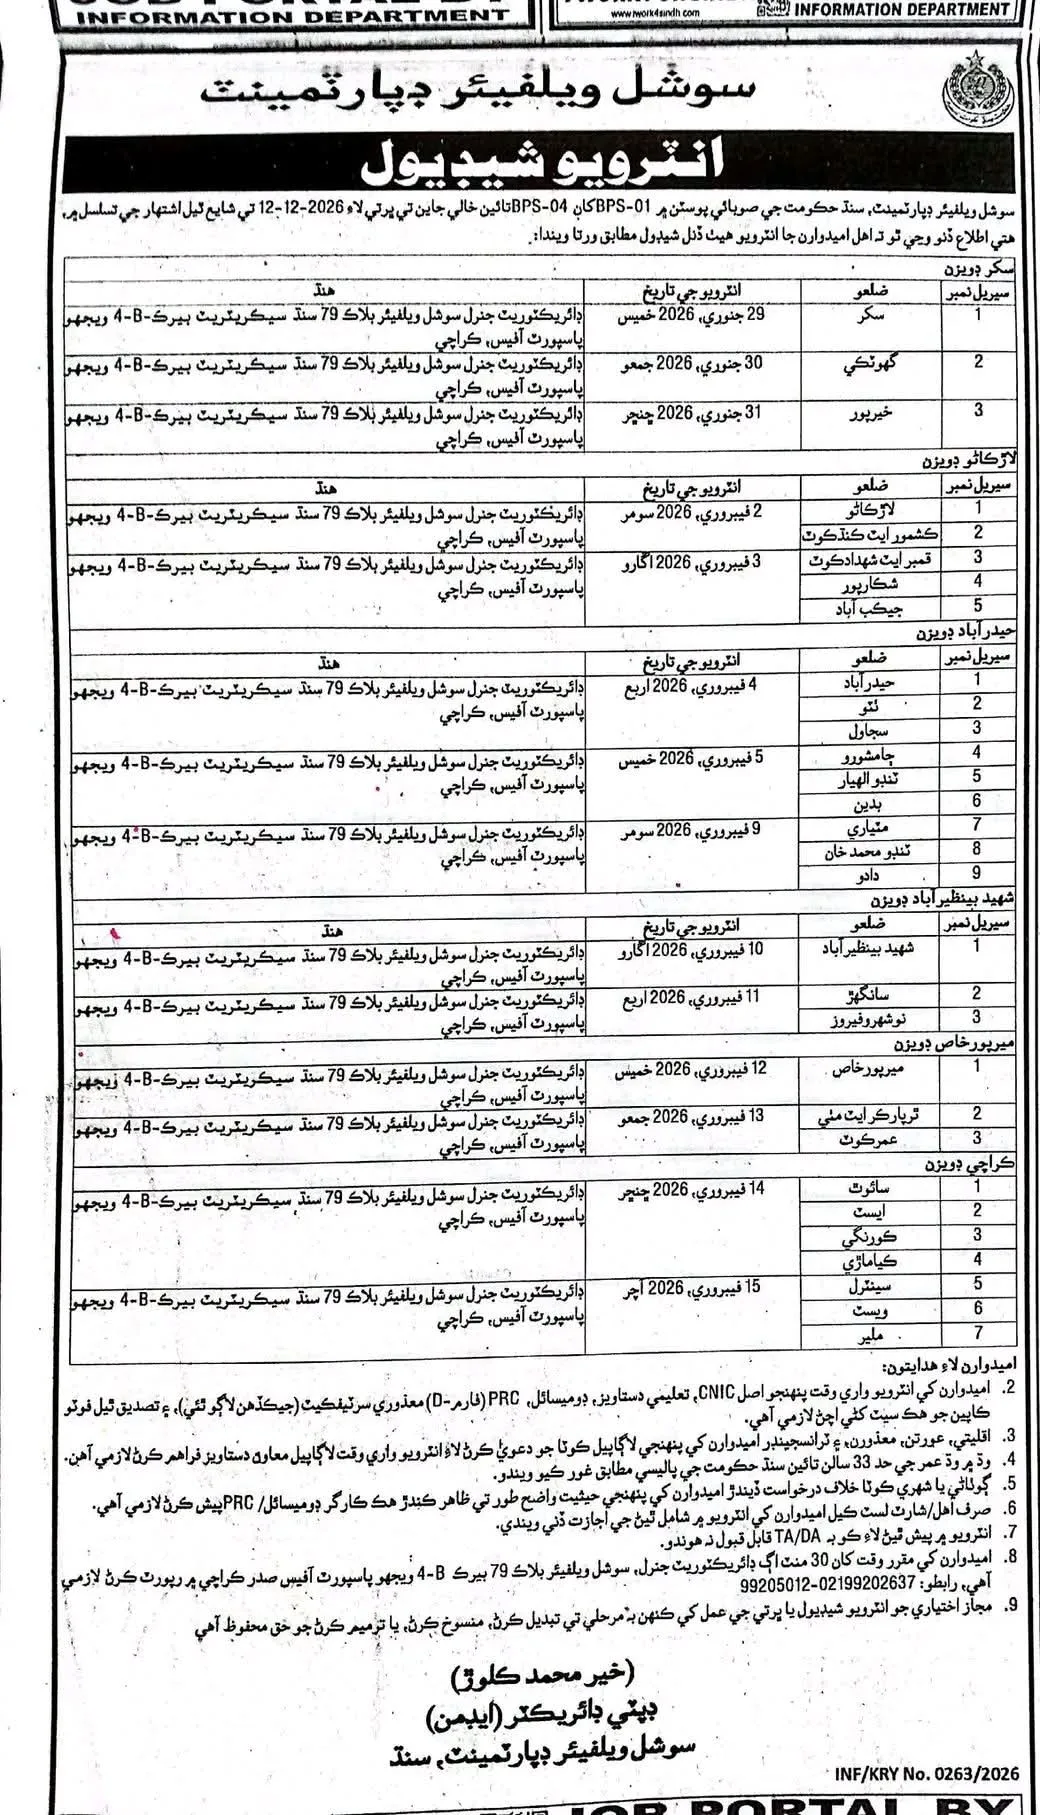 INFORMATION DEPARTMENT
www.iwork4sindh.com
INFORMATION DEPARTMENT
سوشل ويلفيئر ڊپارٽمينٽ
انٽرويو شيڊيول
سوشل ويلفيئر ڊپارٽمينٽ، سنڌ حڪومت جي صوبائي پوسٽن ۾ BPS-01 کان BPS-04 تائين خالي جاين تي ڀرتي لاءِ 2026-12-12 تي شايع ٿيل اشتهار جي تسلسل ۾،
هتي اطلاع ڏنو وڃي ٿو تہ اهل اميدوارن جا انٽرويو هيٺ ڏنل شيڊول مطابق ورتا ويندا:
سکر ڊويزن
سيريل نمبر ضلعو انٽرويو جي تاريخ هنڌ
1 سکر 29 جنوري، 2026 خميس ڊائريڪٽوريٽ جنرل سوشل ويلفيئر بلاڪ 79 سنڌ سيڪريٽريٽ بيرڪ-4-B ويجهو
پاسپورٽ آفيس، ڪراچي
2 گھوٽڪي 30 جنوري، 2026 جمعو ڊائريڪٽوريٽ جنرل سوشل ويلفيئر بلاڪ 79 سنڌ سيڪريٽريٽ بيرڪ-4-B ويجهو
پاسپورٽ آفيس، ڪراچي
3 خيرپور 31 جنوري، 2026 ڇنڇر ڊائريڪٽوريٽ جنرل سوشل ويلفيئر بلاڪ 79 سنڌ سيڪريٽريٽ بيرڪ-4-B ويجهو
پاسپورٽ آفيس، ڪراچي
لاڙڪاڻو ڊويزن
سيريل نمبر ضلعو انٽرويو جي تاريخ هنڌ
1 لاڙڪاڻو 2 فيبروري، 2026 سومر ڊائريڪٽوريٽ جنرل سوشل ويلفيئر بلاڪ 79 سنڌ سيڪريٽريٽ بيرڪ-4-B ويجهو
2 ڪشمور ايٽ ڪنڌڪوٽ پاسپورٽ آفيس، ڪراچي
3 قمبر ايٽ شهدادڪوٽ 3 فيبروري، 2026 اڱارو ڊائريڪٽوريٽ جنرل سوشل ويلفيئر بلاڪ 79 سنڌ سيڪريٽريٽ بيرڪ-4-B ويجهو
4 شڪارپور پاسپورٽ آفيس، ڪراچي
5 جيڪب آباد
حيدرآباد ڊويزن
سيريل نمبر ضلعو انٽرويو جي تاريخ هنڌ
1 حيدرآباد 4 فيبروري، 2026 اربع ڊائريڪٽوريٽ جنرل سوشل ويلفيئر بلاڪ 79 سنڌ سيڪريٽريٽ بيرڪ-4-B ويجهو
2 ٺٽو پاسپورٽ آفيس، ڪراچي
3 سجاول
4 ڄامشورو 5 فيبروري، 2026 خميس ڊائريڪٽوريٽ جنرل سوشل ويلفيئر بلاڪ 79 سنڌ سيڪريٽريٽ بيرڪ-4-B ويجهو
5 ٽنڊو الهيار پاسپورٽ آفيس، ڪراچي
6 بدين
7 مٽياري 9 فيبروري، 2026 سومر ڊائريڪٽوريٽ جنرل سوشل ويلفيئر بلاڪ 79 سنڌ سيڪريٽريٽ بيرڪ-4-B ويجهو
8 ٽنڊو محمد خان پاسپورٽ آفيس، ڪراچي
9 دادو
شهيد بينظيرآباد ڊويزن
سيريل نمبر ضلعو انٽرويو جي تاريخ هنڌ
1 شهيد بينظيرآباد 10 فيبروري، 2026 اڱارو ڊائريڪٽوريٽ جنرل سوشل ويلفيئر بلاڪ 79 سنڌ سيڪريٽريٽ بيرڪ-4-B ويجهو
پاسپورٽ آفيس، ڪراچي
2 سانگھڙ 11 فيبروري، 2026 اربع ڊائريڪٽوريٽ جنرل سوشل ويلفيئر بلاڪ 79 سنڌ سيڪريٽريٽ بيرڪ-4-B ويجهو
3 نوشهروفيروز پاسپورٽ آفيس، ڪراچي
ميرپورخاص ڊويزن
1 ميرپورخاص 12 فيبروري، 2026 خميس ڊائريڪٽوريٽ جنرل سوشل ويلفيئر بلاڪ 79 سنڌ سيڪريٽريٽ بيرڪ-4-B ويجهو
پاسپورٽ آفيس، ڪراچي
2 ٿرپارڪر ايٽ مٺي 13 فيبروري، 2026 جمعو ڊائريڪٽوريٽ جنرل سوشل ويلفيئر بلاڪ 79 سنڌ سيڪريٽريٽ بيرڪ-4-B ويجهو
3 عمرڪوٽ پاسپورٽ آفيس، ڪراچي
ڪراچي ڊويزن
1 سائوٿ 14 فيبروري، 2026 ڇنڇر ڊائريڪٽوريٽ جنرل سوشل ويلفيئر بلاڪ 79 سنڌ سيڪريٽريٽ بيرڪ-4-B ويجهو
2 ايسٽ پاسپورٽ آفيس، ڪراچي
3 ڪورنگي
4 ڪياماڙي
5 سينٽرل 15 فيبروري، 2026 آچر ڊائريڪٽوريٽ جنرل سوشل ويلفيئر بلاڪ 79 سنڌ سيڪريٽريٽ بيرڪ-4-B ويجهو
6 ويسٽ پاسپورٽ آفيس، ڪراچي
7 ملير
اميدوارن لاءِ هدايتون:
2. اميدوارن کي انٽرويو واري وقت پنهنجو اصل CNIC، تعليمي دستاويز، ڊوميسائل، PRC (فارم-D) معذوري سرٽيفڪيٽ (جيڪڏهن لاڳو ٿئي)، ۽ تصديق ٿيل فوٽو
ڪاپين جو هڪ سيٽ کڻي اچڻ لازمي آهي.
3. اقليتي، عورتن، معذورن، ۽ ٽرانسجينڊر اميدوارن کي پنهنجي لاڳاپيل ڪوٽا جو دعويٰ ڪرڻ لاءِ انٽرويو واري وقت لاڳاپيل معاون دستاويز فراهم ڪرڻ لازمي آهن.
4. وڌ ۾ وڌ عمر جي حد 33 سالن تائين سنڌ حڪومت جي پاليسي مطابق غور ڪيو ويندو.
5. ڳوٺاڻي يا شهري ڪوٽا خلاف درخواست ڏيندڙ اميدوارن کي پنهنجي حيثيت واضح طور تي ظاهر ڪندڙ هڪ ڪارگر ڊوميسائل/PRC پيش ڪرڻ لازمي آهي.
6. صرف اهل/شارٽ لسٽ ڪيل اميدوارن کي انٽرويو ۾ شامل ٿيڻ جي اجازت ڏني ويندي.
7. انٽرويو ۾ پيش ٿيڻ لاءِ ڪو بہ TA/DA قابل قبول نہ هوندو.
8. اميدوارن کي مقرر وقت کان 30 منٽ اڳ ڊائريڪٽوريٽ جنرل، سوشل ويلفيئر بلاڪ 79 بيرڪ 4-B ويجهو پاسپورٽ آفيس صدر ڪراچي ۾ رپورٽ ڪرڻ لازمي
آهي، رابطو: 02199202637-99205012
9. مجاز اختياري جو انٽرويو شيڊيول يا ڀرتي جي عمل کي ڪنهن بہ مرحلي تي تبديل ڪرڻ، منسوخ ڪرڻ، يا ترميم ڪرڻ جو حق محفوظ آهي
(خير محمد ڪلوڙ)
ڊپٽي ڊائريڪٽر (ايڊمن)
سوشل ويلفيئر ڊپارٽمينٽ، سنڌ
INF/KRY No. 0263/2026
JOB PORTAL BY